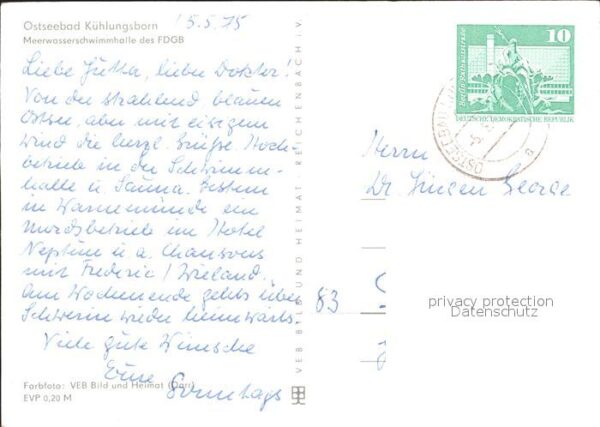 Ostseebad Kühlungsborn
Meerwasserschwimmhalle des FDGB
5.5.75
Liebe Jutta, lieber Doktor!
Von der strahlend blauen
Ostsee, aber mit eisigem
Wind die herzl. Grüße. Hoch-
betrieb in der Schwimm-
halle u. Sauna. Gestern
in Warnemünde ein
Mordsbetrieb im Hotel
Neptun u. a. Chansons
mit Frederic / Wieland.
Am Wochenende gehts über
Schwerin wieder heimwärts.
Viele gute Wünsche
Eure
Sonntags
Farbfoto: VEB Bild und Heimat (Darr)
EVP 0,20 M
VEB BILD UND HEIMAT · REICHENBACH i. V.
10
DEUTSCHE DEMOKRATISCHE REPUBLIK
OSTSEEBAD
Herrn
Dr. George
83
privacy protection
Datenschutz